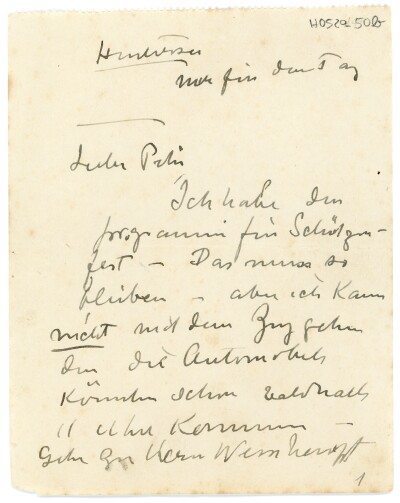 H052a 50b
nur für den Tag
Lieber
Ich habe den
programm für Schützen-
fest – Das muss so
bleiben – aber ich kann
nicht mit dem Zug gehen
den die Automobils
könnten schon bald nach
11 Uhr kommen –
Gehe zu Herrn
1